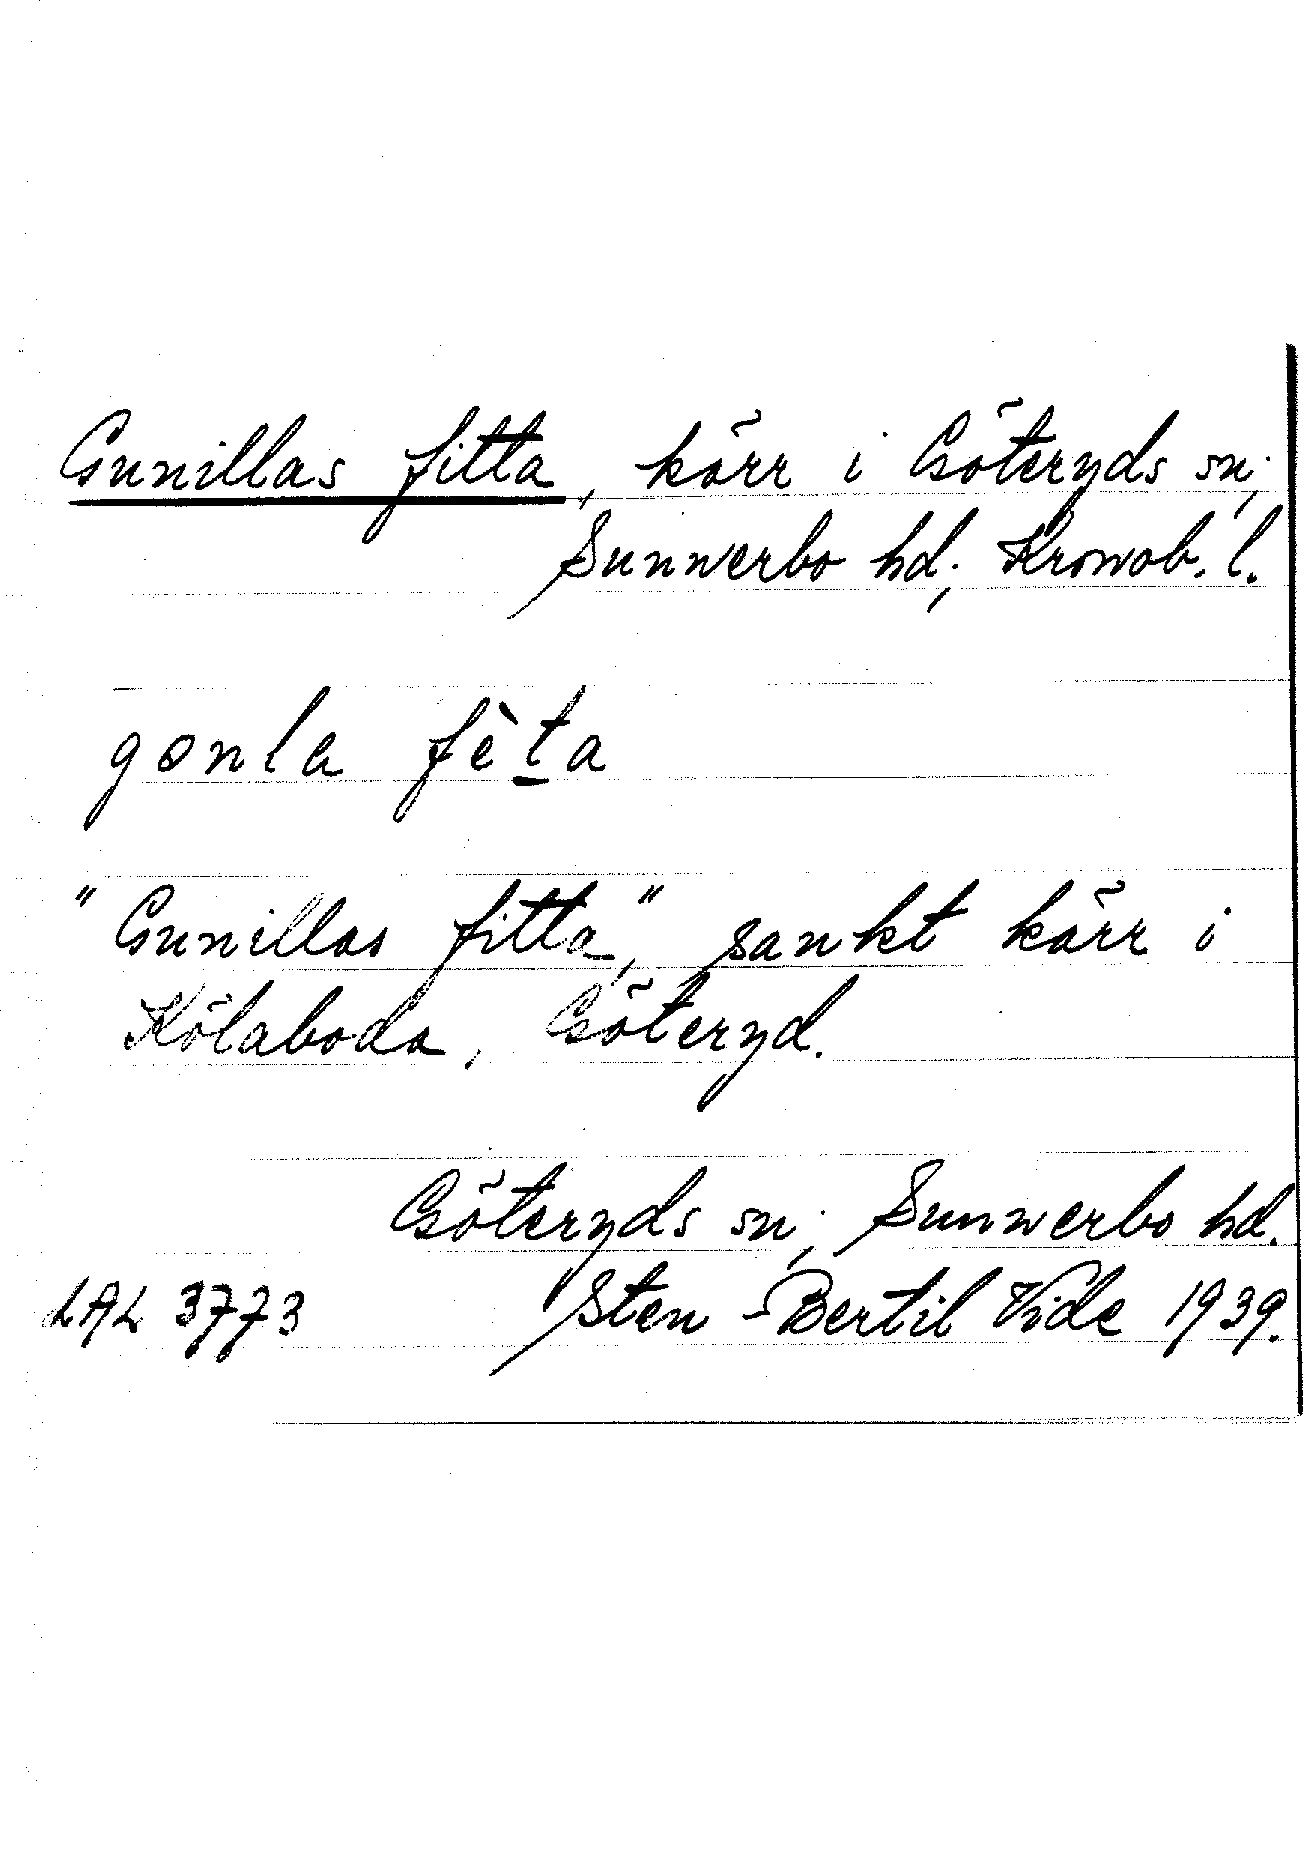 Gunillas fitta, kärr i Göteryds sn,
Sunnerbo hd, Kronob. l.
gonla fèta
"Gunillas fitta," sankt kärr i
Kölaboda, Göteryd.
Göteryds sn, Sunnerbo hd.
LAL 3773 Sten-Bertil Vide 1939.